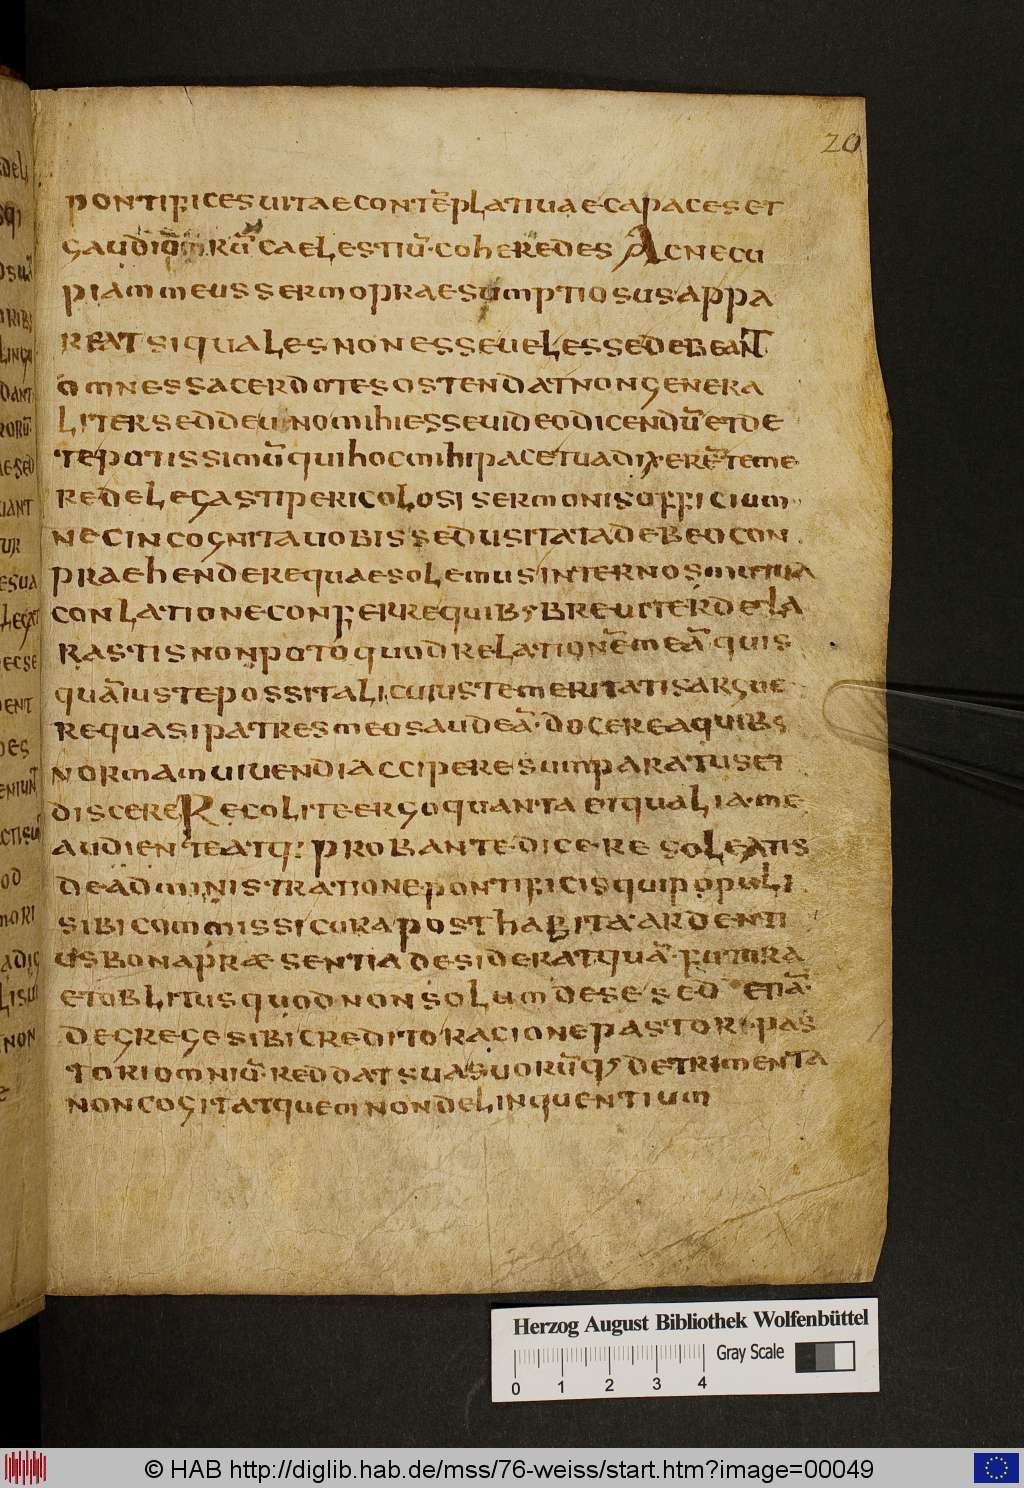 20
PONTIFICES UITAE CONTĒPLATIUAE CAPACES ET
GAUDIORŪ CAELESTIŪ COHEREDES AC NE CU
PIAM MEUS SERMO PRAESUMPTIOSUS APPA
REAT SI QUALES NON ESSE UEL ESSE DEBEANT
OMNES SACERDOTES OSTENDAT NON GENERA
LITER SED DE UNO MIHI ESSE UIDEO DICENDŪ ET DE
TE POTISSIMŪ QUI HOC MIHI PACE TUA DIXERĒ TEME
RE DELEGASTI PERICOLOSI SERMONIS OFFICIUM
NEC INCOGNITA UOBIS SED USITATA DEBEO CON
PRAEHENDERE QUAE SOLEMUS INTER NOS MUTUA
CONLATIONE CONFERRE QUIBS BREUITER DECLA
RASTIS NON POTO QUOD RELATIONĒ MEĀ QUIS
QUĀ IUSTE POSSIT ALICUIUS TEMERITATIS ARGUE
RE QUASI PATRES MEOS AUDEĀ DOCERE A QUIBS
NORMAM UIUENDI ACCIPERE SUM PARATUS ET
DISCERE RECOLITE ERGO QUANTA ET QUALIA ME
AUDIENTE ATQ: PROBANTE DICERE SOLEATIS
DE ADMINISTRATIONE PONTIFICIS QUI POPULI
SIBI COMMISSI CURA POSTHABITA ARDENTI
US BONA PRÆSENTIA DESIDERAT QUĀ FUTURA
ET OBLITUS QUOD NON SOLUM DE SE SED ETIĀ
DE GREGE SIBI CREDITO RACIONE PASTORI PAS
TORI OMNIŪ REDDAT SUA SUORŪQ; DETRIMENTA
NON COGITAT QUEM NON DELINQUENTIUM
Herzog August Bibliothek Wolfenbüttel
Gray Scale
0 1 2 3 4
© HAB http://diglib.hab.de/mss/76-weiss/start.htm?image=00049